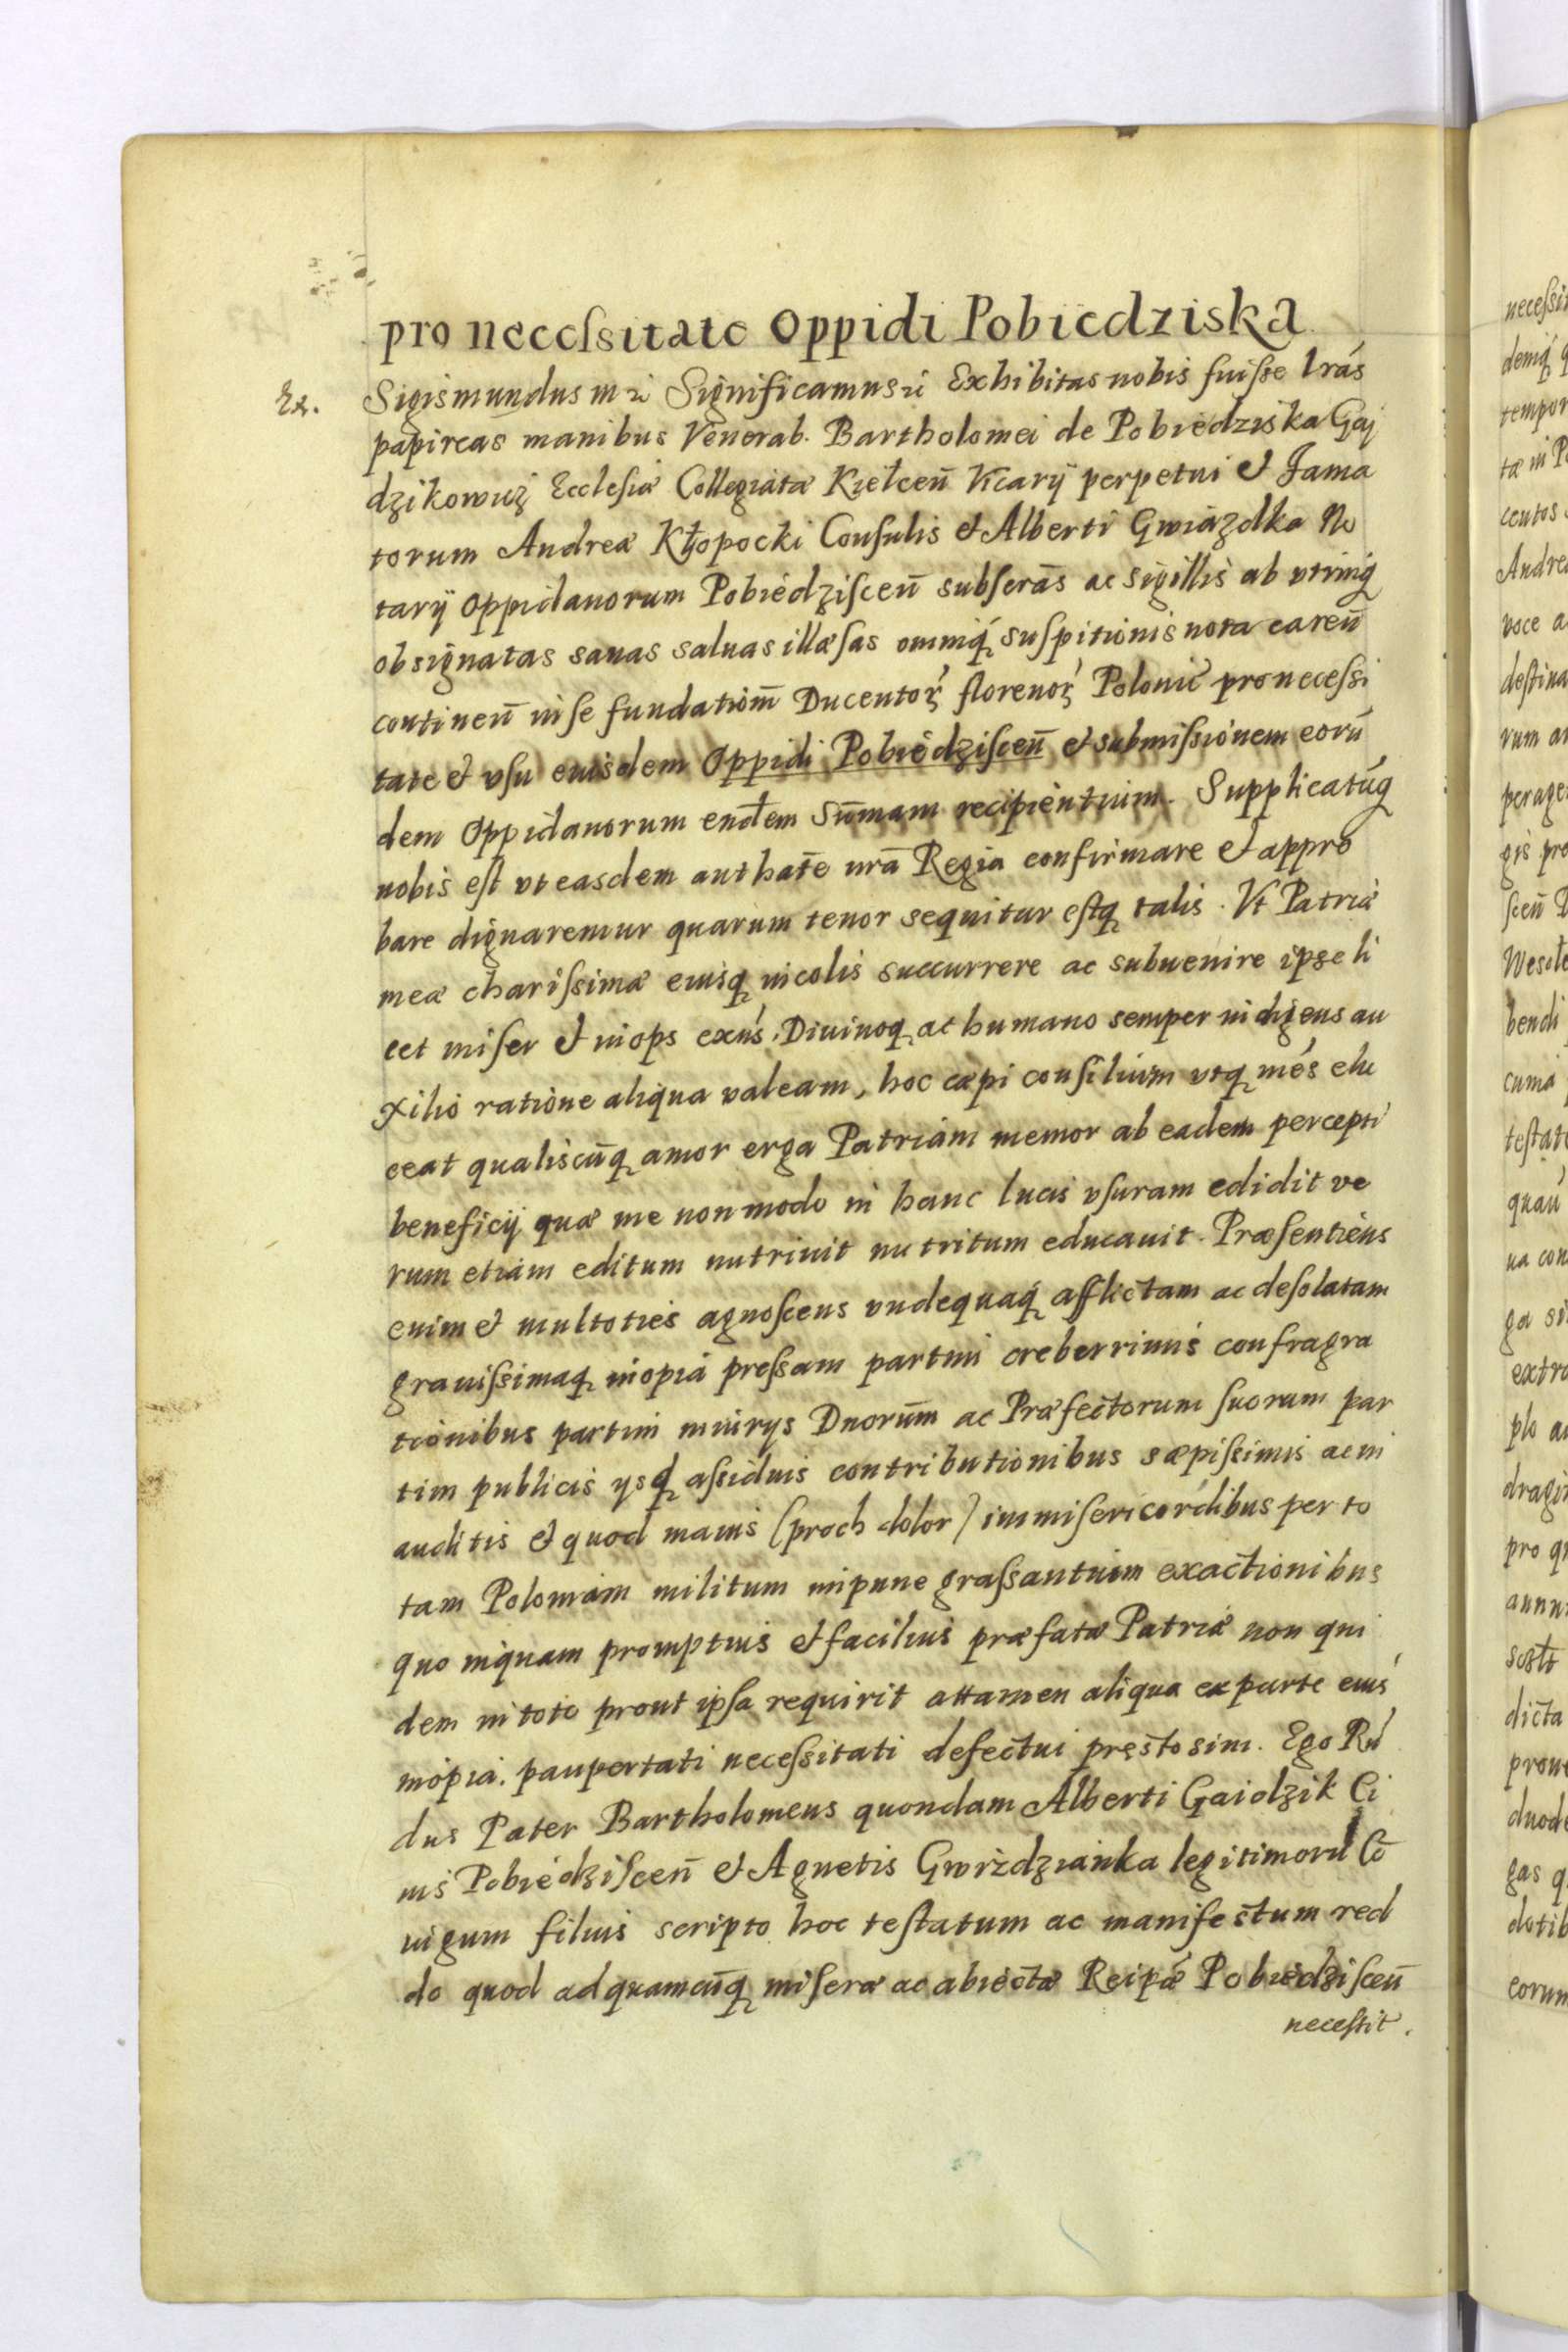 pro necessitate Oppidi Pobiedziska
Ex. Sigismundus III ꝛc Significamus ꝛc Exhibitas nobis fuisse l̄ras
papireas manibus Venerab. Bartholomei de Pobiedziska Gaj
dzikowicz Ecclesiæ Collegiatæ Kielceñ Vicarÿ perpetui et Fama
torum Andreæ Kłopocki Consulis et Alberti Gwiazdka No
tarÿ Oppidanorum Pobiedzisceñ subscras̄ ac sigillis ab vtrinq́
obsignatas sanas saluas illæsas omniq́ suspitionis nota careñ
contineñ in se fundatiom̄ Ducentoꝝ florenoꝝ Polonic̄ pro necessi
tate et vsu eiusdem Oppidi Pobiedzisceñ et submissionem eorū
dem Oppidanorum eand̄em sūmam recipientium. Supplicatūq
nobis est vt easdem authat̄e nrā Regia confirmare et appro
bare dignaremur quarum tenor sequitur estq talis. Vt Patriæ
meæ charissimæ eiusq incolis succurrere ac subuenire ipse li
cet miser et inops exns̄. Diuinoq ac humano semper indigens au
xilio ratione aliqua valeam, hoc cæpi consilium vtq més elu
ceat qualiscūq amor erga Patriam memor ab eadem percepti
beneficÿ quæ me non modo in hanc lucis vsuram edidit ve
rum etiam editum nutriuit nutritum educauit. Præsentiens
enim et multoties agnoscens vndequaq́ afflictam ac desolatam
grauissimaq inopia pressam partim creberrimis confragra
tionibus partim iniurÿs Dnorum̄ ac Præfectorum suorum par
tim publicis ÿsq assiduis contributionibus sæpissimis ac in
auditis et quod maius (proch dolor) immisericordibus per to
tam Poloniam militum impune grassantium exactionibus
quo inquam promptius et facilius præfatæ Patriæ non qui
dem in toto prout ipsa requirit attamen aliqua ex parte eius
inopia. paupertati necessitati defectui pręsto sim. Ego Rń
dus Pater Bartholomeus quondam Alberti Gaidzik Ci
uis Pobiedzisceñ et Agnetis Gwizdzianka legitimorū Cō
iugum filius scripto hoc testatum ac manifestum red
do quod ad quamcūq miseræ ac abiectæ Reipǽ Pobiedzisceñ
necessit.
necessi
demq́
tempor
tæ in
centos
Andre
voce a
destina
rum
perage
gis pro
sceñ
bendi
cuma
testat
quaū
ua con
ga si
extra
plo
dragi
pro
annu
dicta
proue
duode
gas q
dotib
corum